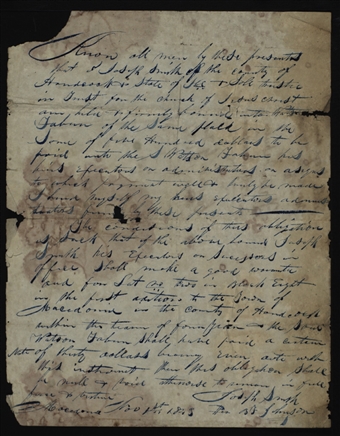 Know all men by these presents
that I Joseph Smith of the county of
Hancock & State of Ill & Sole trustee
in trust for the church of Jesus christ
am held & firmly bound unto
of the Same place in the
Some of five Hundred dollars to be
paid unto the S. his
executors or administrators or assigns
to which payment well & truly be made
I bind myself my heirs executors
these presents
The conditions of this obligation
is Such that if the above bound Joseph
Smith his Executors or Successors in
office Shall make a good warrante
deed for Lot two in Block Eight
in the first adition to the town of
Macedonia in the county of Hancock
within the term of from & the Said
Shall have paid a certain
Note of thirty dollars bearing even date with
this instrument then this obligation Shall
be null & void otherwise to remain in full
force & virtue
Joseph Smith
Macedonia